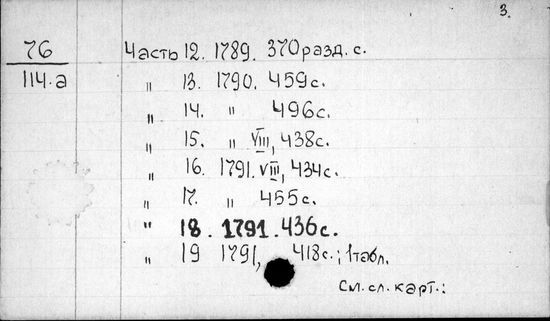 3.
76 Часть 12. 1789. 370 разд. с.
114.а " 13. 1790. 459 с.
" 14. " 496 с.
" 15. " VIII, 438 с.
" 16. 1791. VIII, 434 с.
" 17. " 455 с.
" 18. 1791. 436 с.
" 19 1791, 418 с.; 1 табл.
См. сл. карт.: